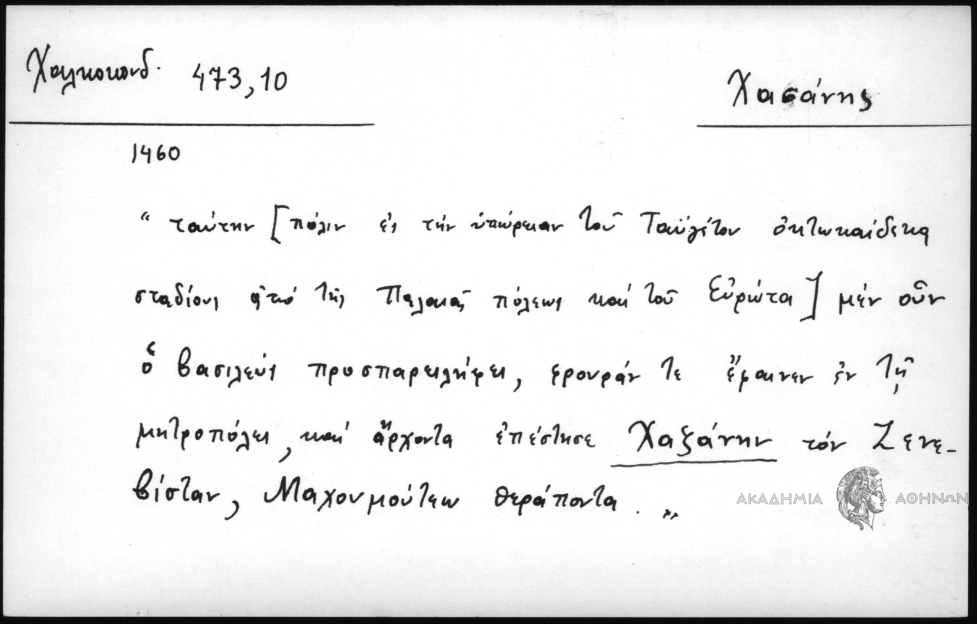 Χαλκοκονδ. 473,10
Χασάνης
1460
“ ταύτην [πόλιν ἐς τὴν ὑπώρειαν τοῦ Ταϋγέτου ὀκτωκαίδεκα
σταδίους ἀπὸ τῆς Παλαιᾶς πόλεως καὶ τοῦ Εὐρώτα] μὲν οὖν
ὁ βασιλεὺς προσπαρειλήφει, φρουράν τε ἔφαινεν ἐν τῇ
μητροπόλει, καὶ ἄρχοντα ἐπέστησε Χαξάνην τὸν Ζενε-
βίσταν, Μαχουμούτεω θεράποντα. „
ΑΚΑΔΗΜΙΑ ΑΘΗΝΩΝ